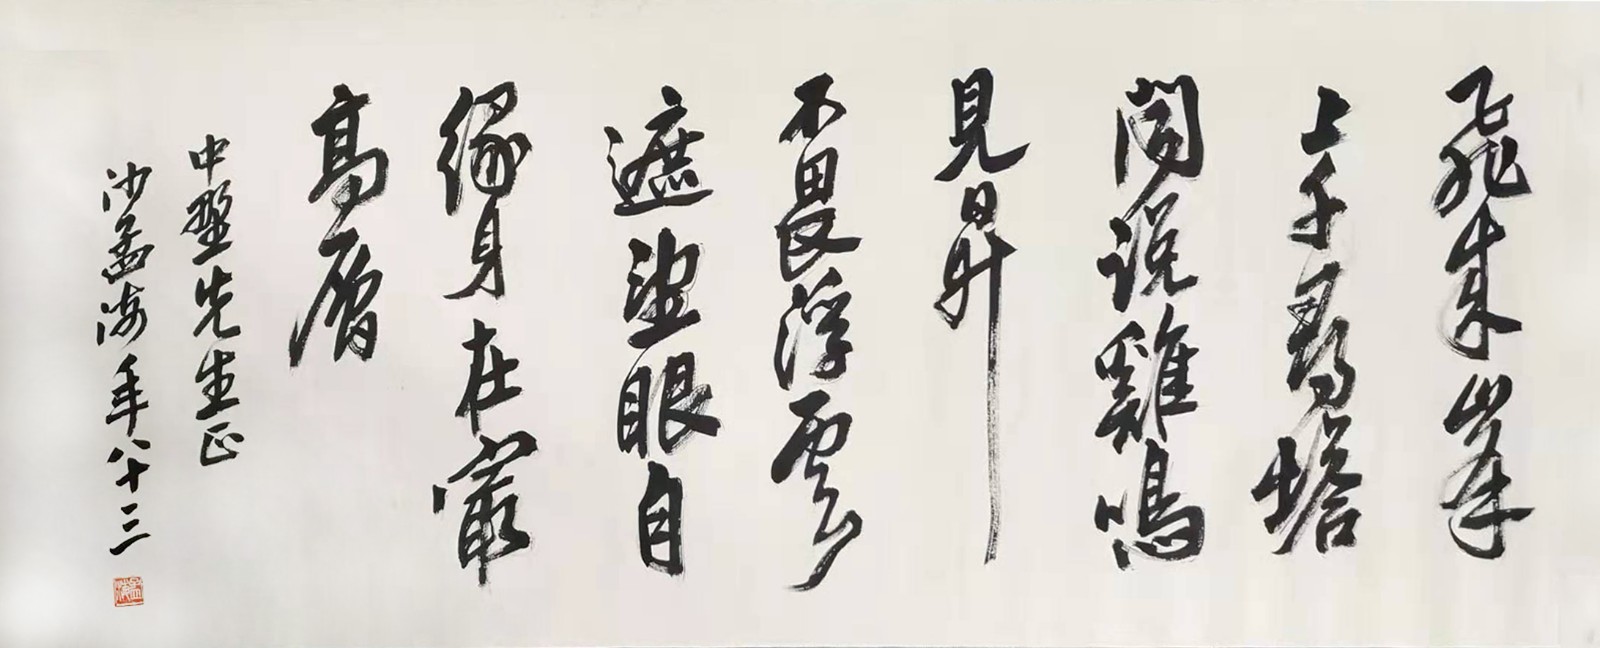 飛來峯
上千尋塔
聞說雞鳴
見日昇
不畏浮雲
遮望眼自
緣身在寂
高層
中堅先生正
沙孟海年八十三